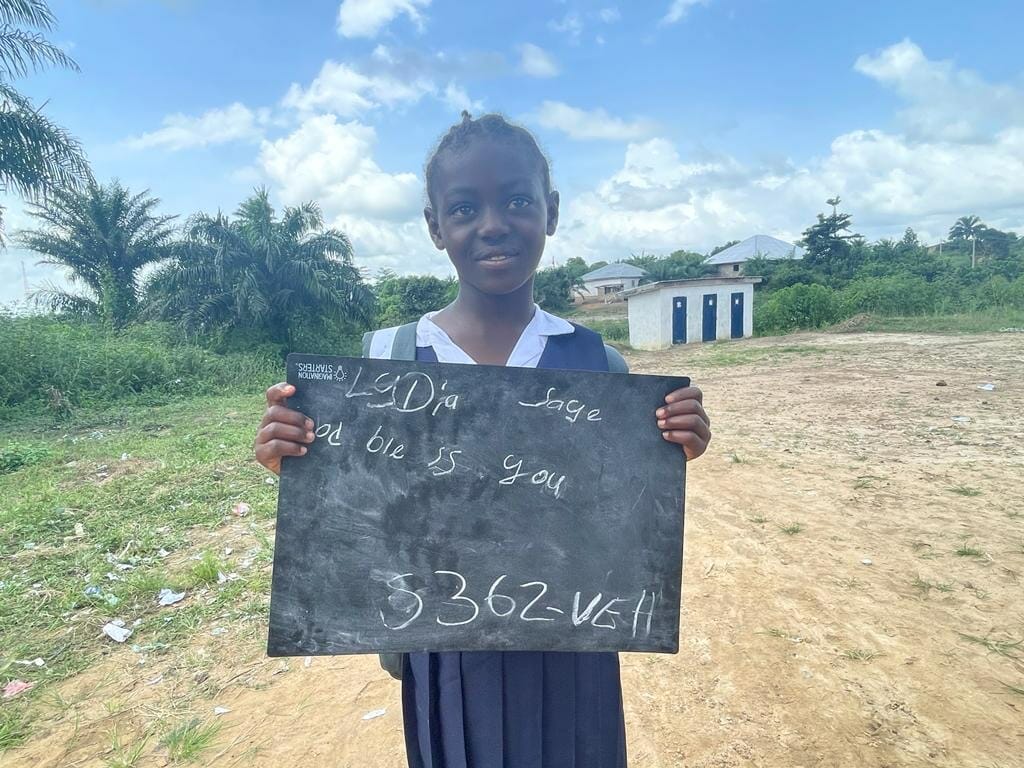 IMAGINATION
STARTERS
LYDia Sage
od ble is you
S362-VEH